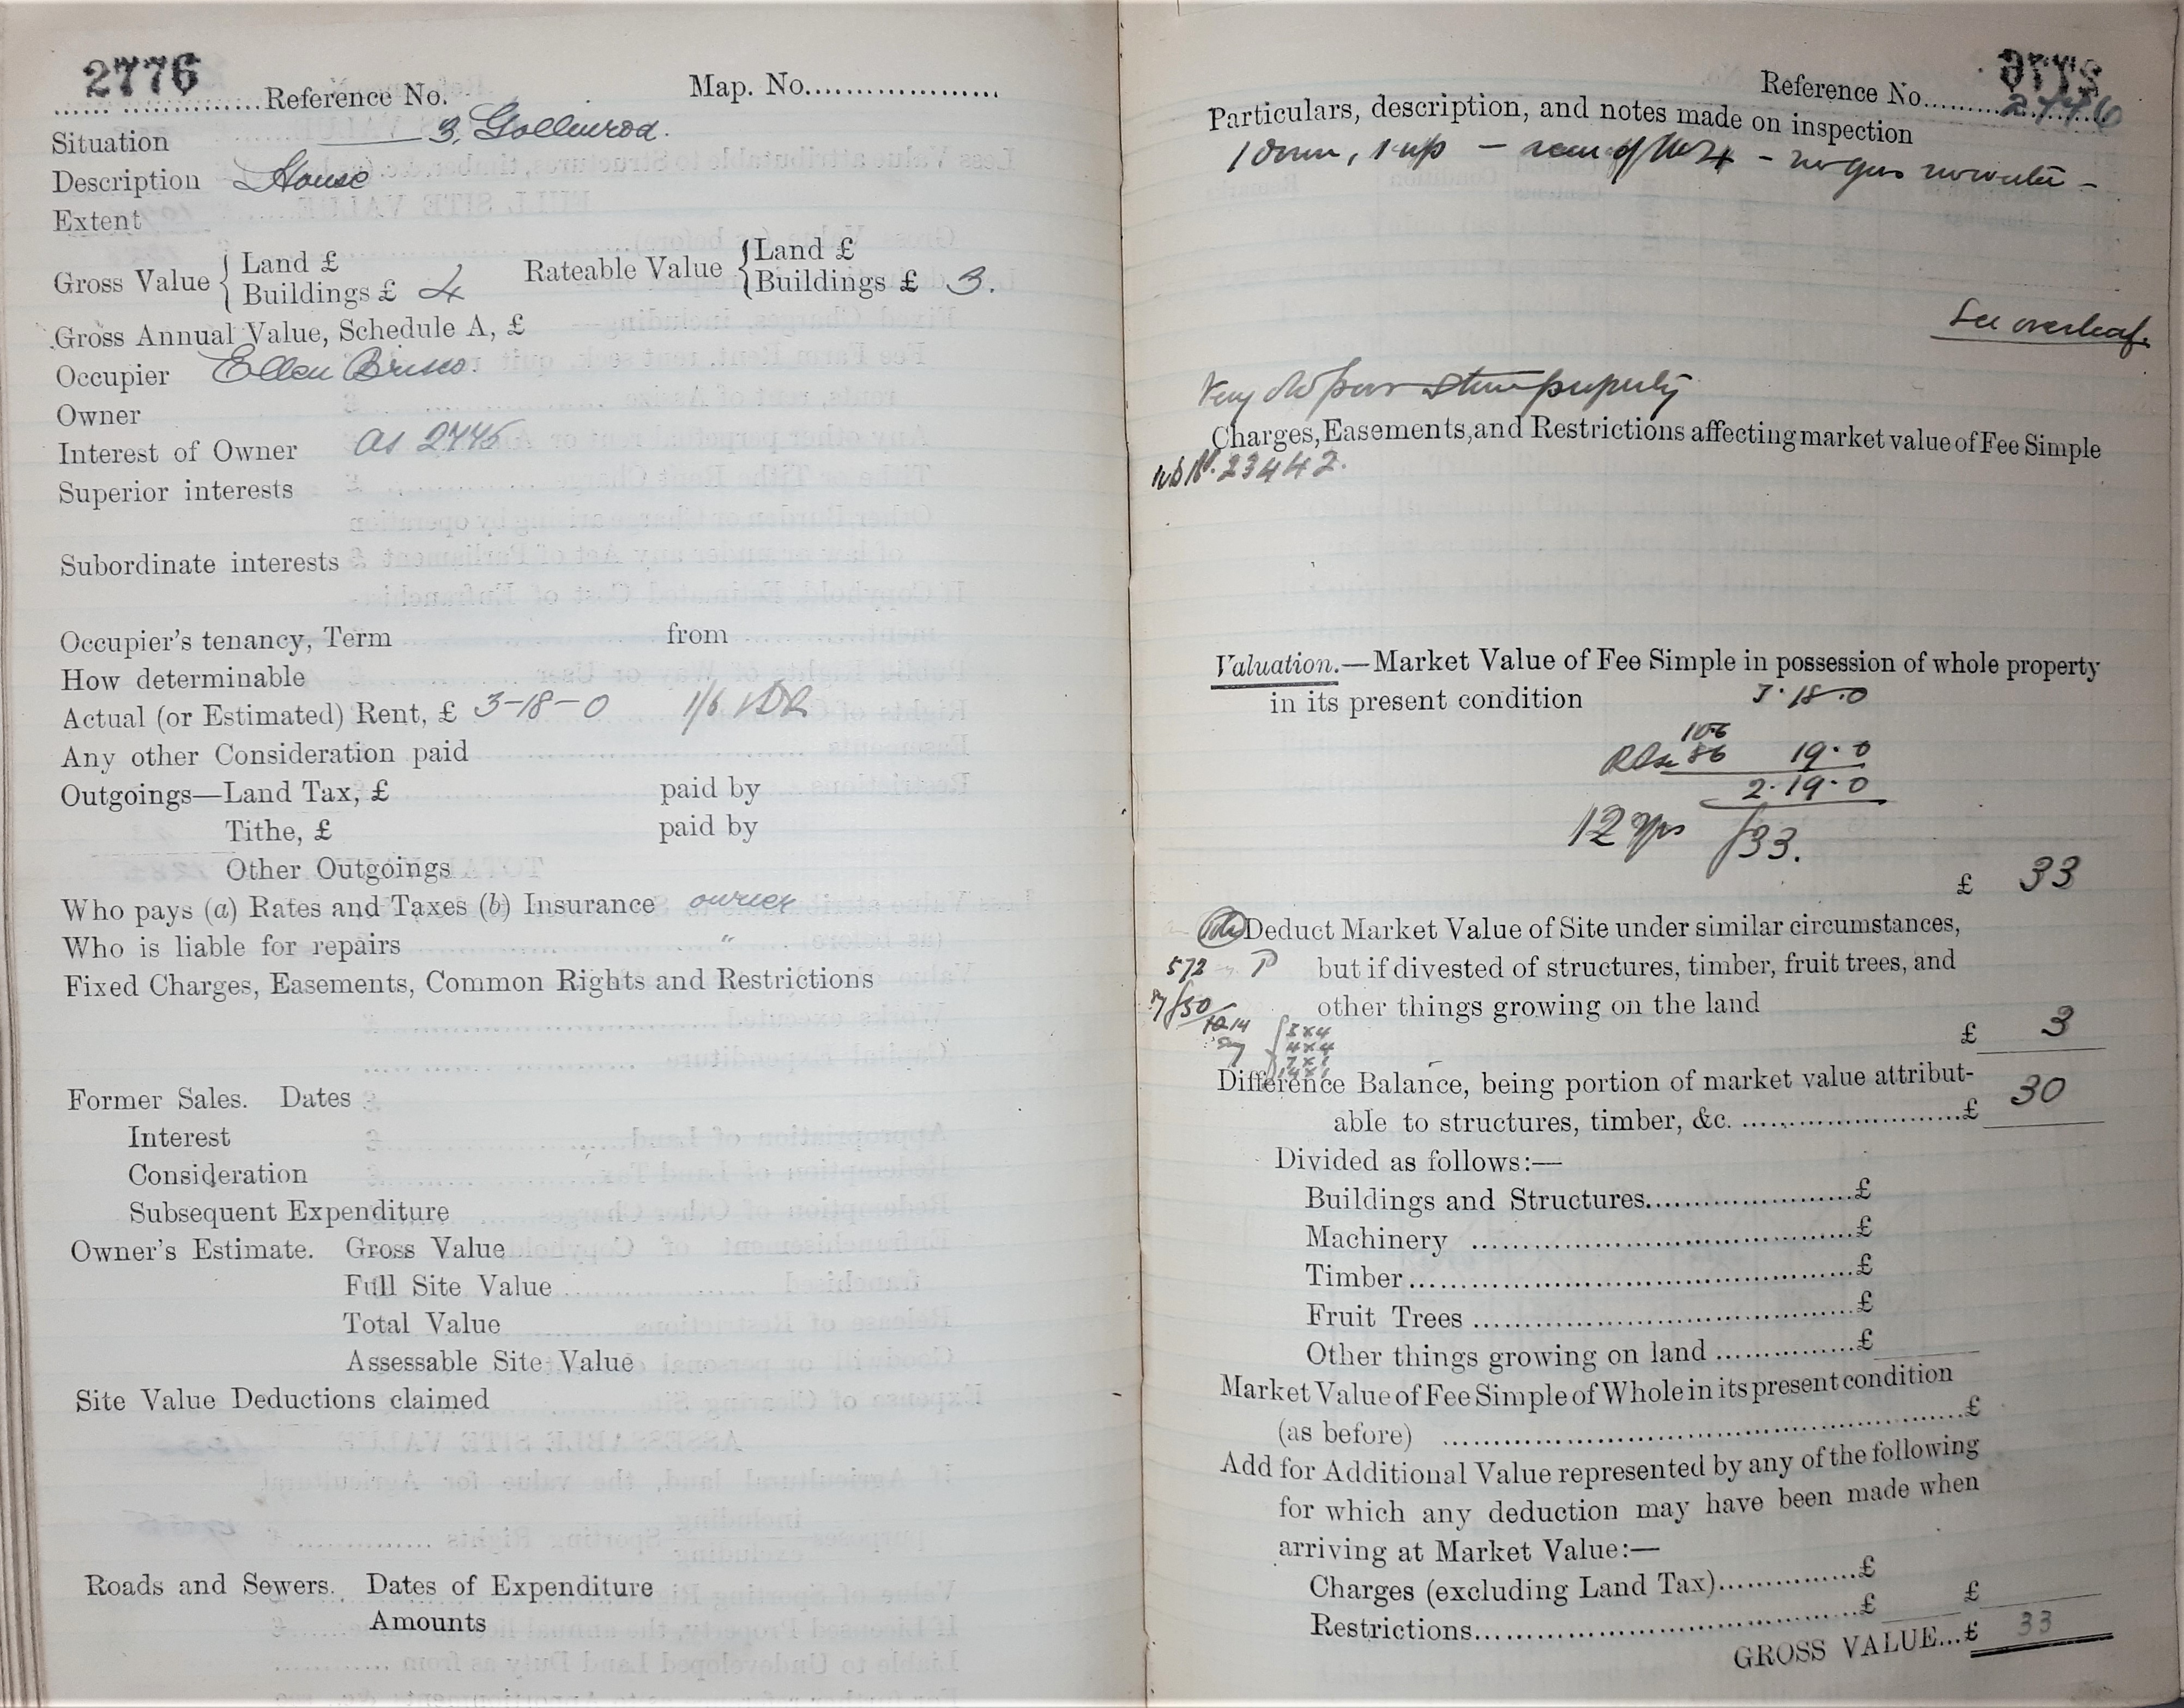 2776
Reference No. Map. No.
Situation 3, Gollinrod.
Description House
Extent
Gross Value { Land £
Buildings £ 4
Rateable Value { Land £
Buildings £ 3.
Gross Annual Value, Schedule A, £
Occupier Ellen
Owner
Interest of Owner as 2775
Superior interests
Subordinate interests
Occupier's tenancy, Term from
How determinable
Actual (or Estimated) Rent, £ 3-18-0 1/6
Any other Consideration paid
Outgoings—Land Tax, £ paid by
Tithe, £ paid by
Other Outgoings
Who pays (a) Rates and Taxes (b) Insurance owner
Who is liable for repairs "
Fixed Charges, Easements, Common Rights and Restrictions
Former Sales. Dates
Interest
Consideration
Subsequent Expenditure
Owner's Estimate. Gross Value
Full Site Value
Total Value
Assessable Site Value
Site Value Deductions claimed
Roads and Sewers. Dates of Expenditure
Amounts
Reference No. 2776
Particulars, description, and notes made on inspection
1 down, 1 up — rear of 2774 - no gas no water -
See overleaf.
Very old poor stone property
Charges, Easements, and Restrictions affecting market value of Fee Simple
23442.
Valuation.—Market Value of Fee Simple in possession of whole property
in its present condition 3.18.0
10-6
86 19.0
2.19.0
12 yrs £33.
£ 33
Deduct Market Value of Site under similar circumstances,
572 but if divested of structures, timber, fruit trees, and
£50 other things growing on the land
£ 3
Difference Balance, being portion of market value attribut-
able to structures, timber, &c. £ 30
Divided as follows:—
Buildings and Structures £
Machinery £
Timber £
Fruit Trees £
Other things growing on land £
Market Value of Fee Simple of Whole in its present condition
(as before) £
Add for Additional Value represented by any of the following
for which any deduction may have been made when
arriving at Market Value:—
Charges (excluding Land Tax) £
Restrictions £ £
GROSS VALUE...£ 33